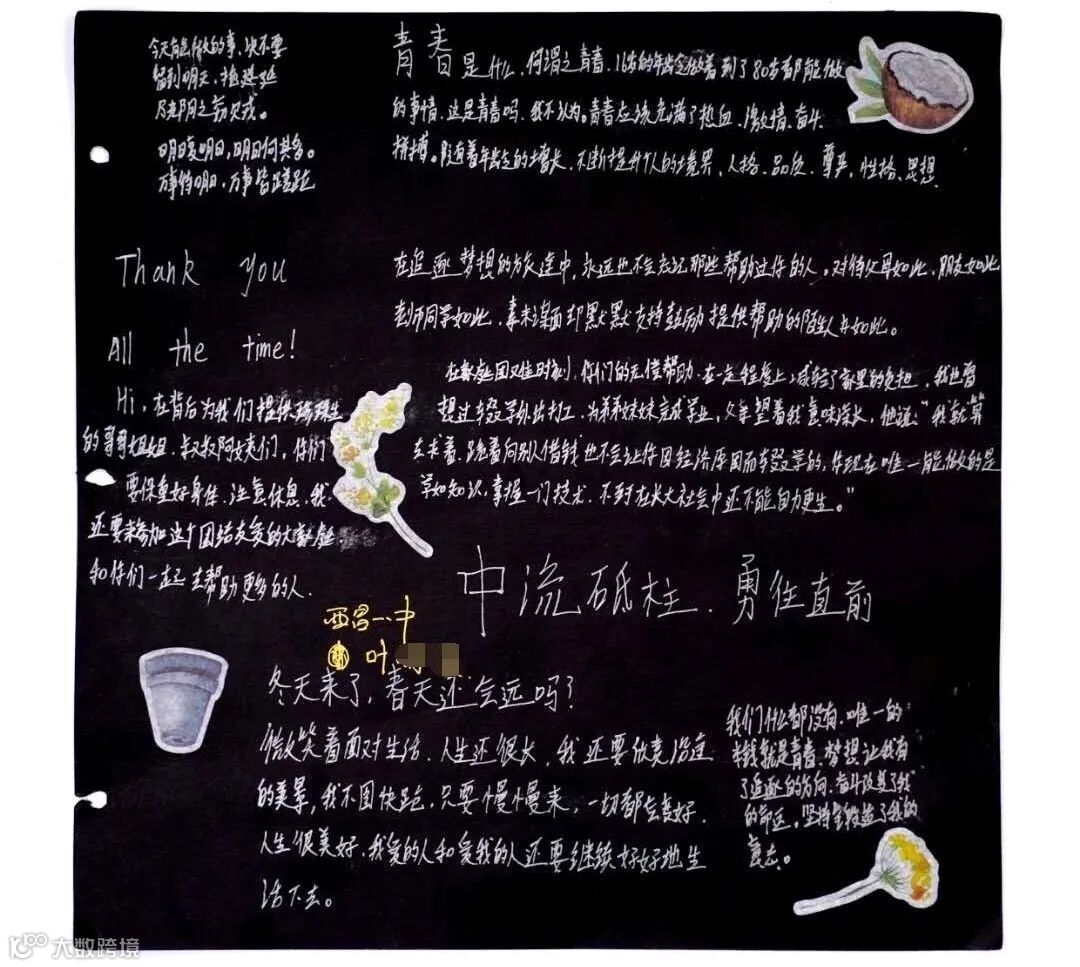 今天能做的事，决不要
留到明天，拖延
乃
明日复明日，明日何其多。
万事待明日，万事皆蹉跎
青春是什么，何谓之青春，16岁的年龄做着到了80岁都能做
的事情，这是青春吗，我不认为。青春应该充满了热血、激情、奋斗、
拼搏。随着年龄的增长，不断提升个人的境界、人格、品质、尊严、性格、思想
Thank you
All the time!
在追逐梦想的旅途中，永远也不会忘记那些帮助过你的人，对待父母如此，朋友如此
老师同学如此，素未谋面却默默支持鼓励提供帮助的陌生人亦如此。
在家庭困难时刻，你们的无偿帮助，在一定程度上减轻了家里的负担，我也曾
想过辍学外出打工，为弟弟妹妹完成学业，父亲望着我意味深长，他说："我就算
去求着，跪着向别人借钱也不会让你因经济原因而辍学的，你现在唯一能做的是
学如知识，掌握一门技术，不到在长大社会中还不能自力更生。"
Hi，在背后为我们提供
的哥哥姐姐、叔叔阿姨们，你们
要保重好身体，注意休息，我
还要来参加这个团结友爱的大家庭
和你们一起去帮助更多的人.
中流砥柱、勇往直前
西昌一中
叶
冬天来了，春天还会远吗？
微笑着面对生活，人生还很长，我还要欣赏沿途
的美景，我不图快跑，只要慢慢来，一切都会良好.
人生很美好，我爱的人和爱我的人还要继续好好地生
活下去。
我们什么都没有，唯一的
本钱就是青春，梦想让我有
了追逐的方向，奋斗改变了我
的命运，坚持锻造了我的
意志。
大数跨境